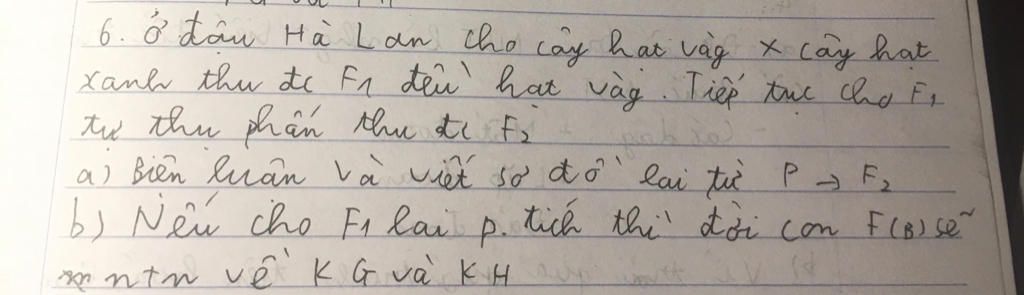 6. Ở đậu Hà Lan cho cây hạt vàg x cây hạt
xanh thu đc F1 đều hạt vàg. Tiếp tục cho F1
tự thụ phấn thu đc F2
a) Biện luận và viết sơ đồ lai từ P → F2
b) Nếu cho F1 lai p. tích thì đời con F(B) sẽ
ntn về KG và KH